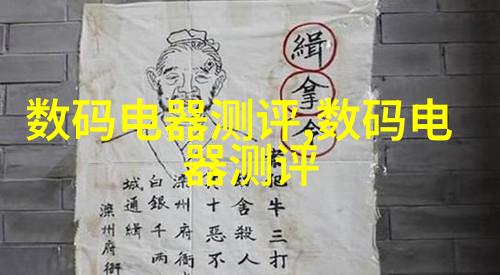 数码电器测评,数码电
器测评
緝拿令
犯牛三打
舍殺人
十惡不
滦州府衙
白銀千两
城通緝
滦州府衙